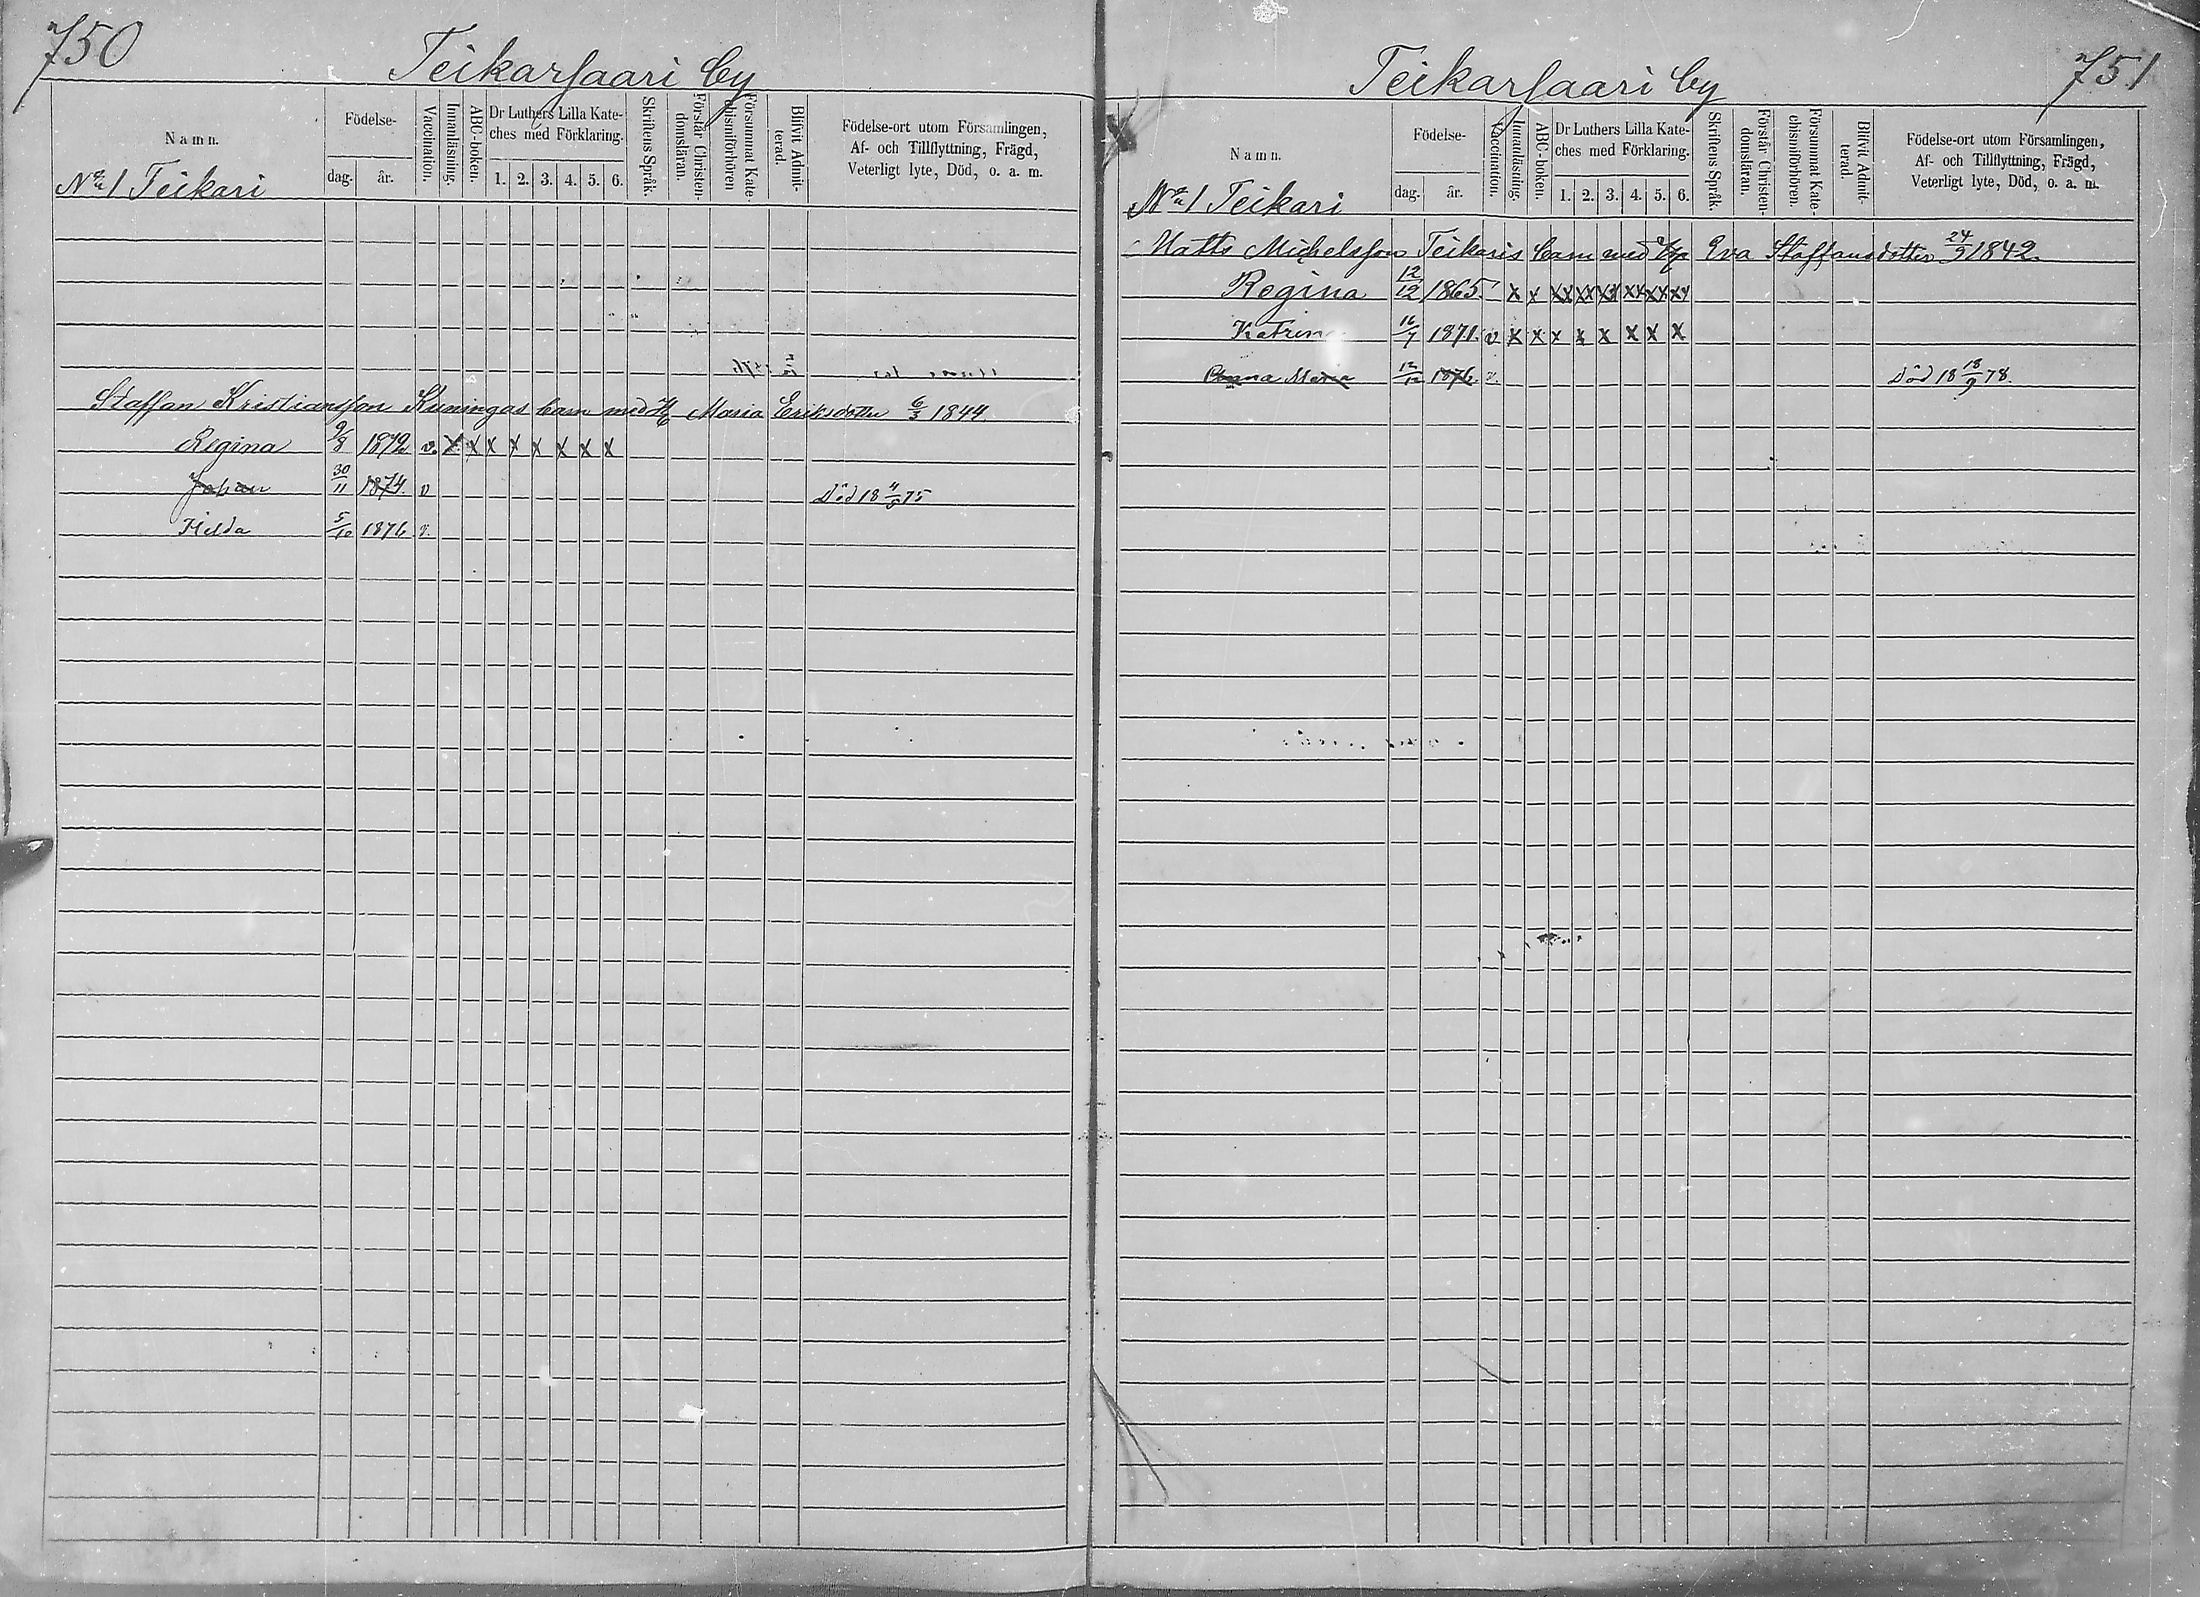 750
Teikarsaari by
Namn.
Födelse-
dag.
år.
Vaccination.
Innanläsning.
ABC-boken.
Dr Luthers Lilla Kate-
ches med Förklaring.
1. 2. 3. 4. 5. 6.
Skriftens Språk.
Förstår Christen-
domsläran.
Försummat Kate-
chismiförhören
Blifvit Admit-
terad.
Födelse-ort utom Församlingen,
Af- och Tillflyttning, Frägd,
Veterligt lyte, Död, o. a. m.
No 1 Teikari
Staffan Kristiansson Kuningas barn med H Maria Eriksdotter 6/3 1844
Regina 9/8 1872 v. x x x x x x x x
Johan 30/11 1874. v Död 18 75
Hilda 5/10 1876 v.
751
Teikarsaari by
Namn.
Födelse-
dag.
år.
Vaccination.
Innanläsning.
ABC-boken.
Dr Luthers Lilla Kate-
ches med Förklaring.
1. 2. 3. 4. 5. 6.
Skriftens Språk.
Förstår Christen-
domsläran.
Försummat Kate-
chismiförhören.
Blifvit Admit-
terad
Födelse-ort utom Församlingen,
Af- och Tillflyttning, Frägd,
Veterligt lyte, Död, o. a. m.
No 1 Teikari
Matts Michelsson Teikaris barn med Eva Staffansdotter 24/9 1842.
Regina 12/12 1865. x x xx xx xx xx xx xx
Katrin 16/7 1871. v x x x x x x x x
Anna Maria 12/12 1876 v. Död 18 18/9 78.